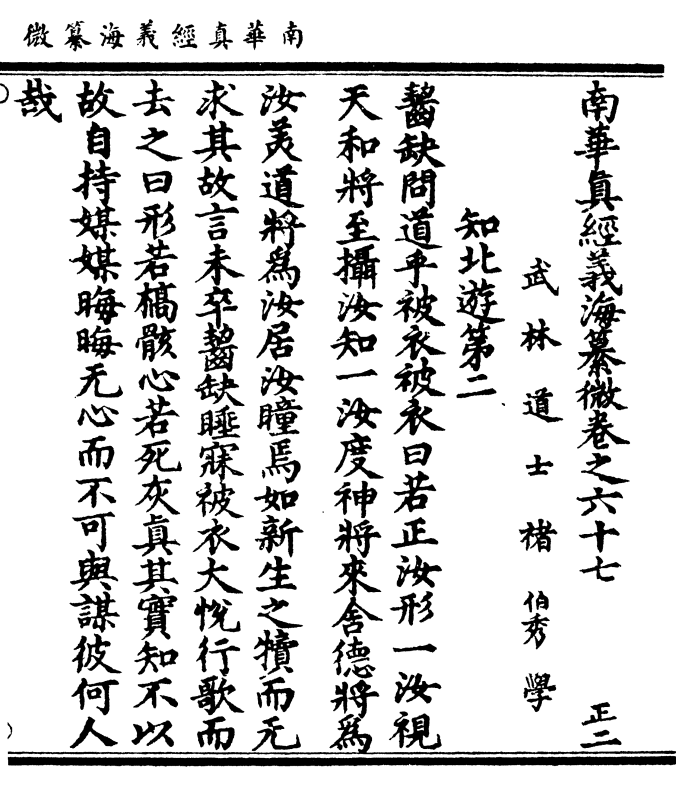 南華真經義海纂微
南華真經義海纂微卷之六十七 正二
武林道士褚伯秀學
知北遊第二
齧缺問道乎被衣被衣曰若正汝形一汝視
天和將至攝汝知一汝度神將來舍德將爲
汝美道將爲汝居汝瞳焉如新生之犢而无
求其故言未卒齧缺睡寐被衣大悅行歌而
去之曰形若槁骸心若死灰真其實知不以
故自持媒媒晦晦无心而不可與謀彼何人
哉